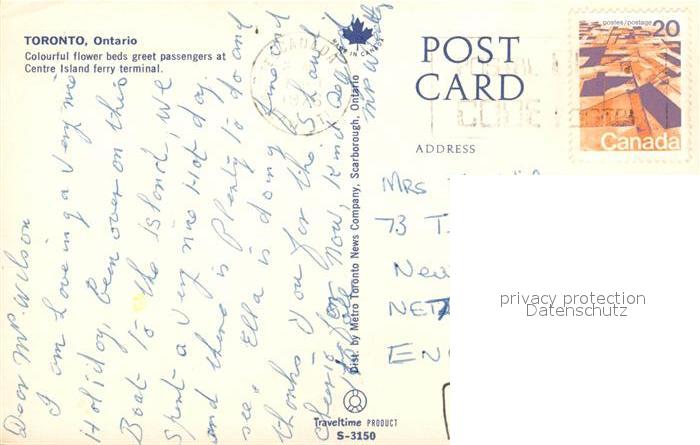 TORONTO, Ontario
Colourful flower beds greet passengers at
Centre Island ferry terminal.
MADE IN CANADA
POST
CARD
ADDRESS
postes/postage 20
Canada
CANADA
Dear Mr. Wilson
I am having a very nice
Holiday, been over on this
Boat to the Island, we
spent a very nice Hot day.
and there is Plenty to do and
see. Ella is doing fine and
thanks you for the
Cheerio for now, Kind regards
Mrs
73
New
EN
Dist. by Metro Toronto News Company, Scarborough, Ontario
Traveltime PRODUCT
S-3150
privacy protection
Datenschutz